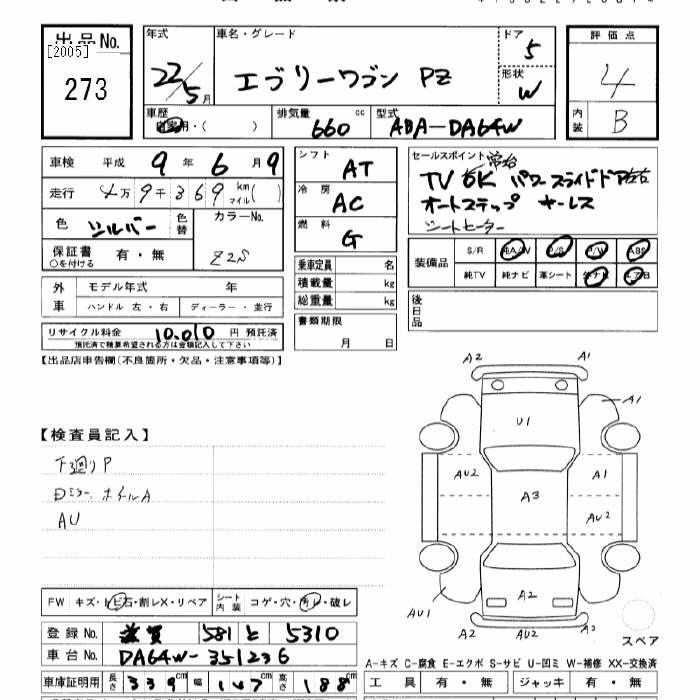 出品No.
[2005]
273
年式 22/5月
車名・グレード エブリーワゴン PZ
ドア 5
形状 W
評価点 4
内装 B
車歴 自家用・( )
排気量 660 cc
型式 ABA-DA64W
車検 平成 9年 6月 9
走行 4万9千369 km マイル( )
色 シルバー 色替
カラーNo. Z2S
保証書 有・無
○を付ける
シフト AT
冷房 AC
燃料 G
セールスポイント
TV BK パワースライドドア左右
オートステップ キーレス
シートヒーター
装備品 S/R 純A/W P/S P/W ABS
純TV 純ナビ 革シート 社ナビ エアB
外車 モデル年式 年
ハンドル 左・右 ディーラー・並行
乗車定員 名
積載量 kg
総重量 kg
後日品
リサイクル料金 10,010 円 預託済
預託済で精算希望される方は金額記入して下さい
書類期限 月 日
【出品店申告欄(不良箇所・欠品・注意事項等)】
【検査員記入】
下廻りP
Dミラー ホイルA
AU
A2 A1
A1
U1
AU2 A3 A1
AU2
A2
AU1
A2 AU2 A3
スペア
FW キズ・トビ石・割レX・リペア シート内装 コゲ・穴・汚レ・破レ
登録No. 滋賀 581 と 5310
車台No. DA64W-351236
車庫証明用 長さ 339cm 幅 147cm 高さ 188cm
A-キズ C-腐食 E-エクボ S-サビ U-凹ミ W-補修 XX-交換済
工具 有・無 ジャッキ 有・無